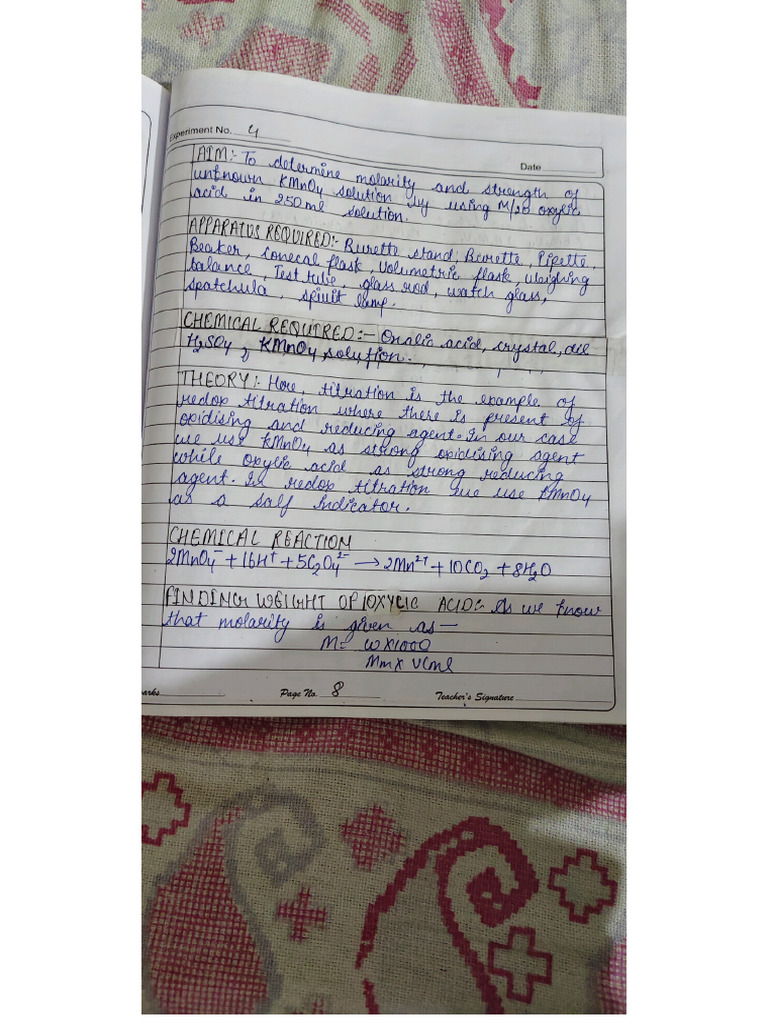 Experiment No. 4
Date
AIM:- To determine molarity and strength of
unknown KMnO4 solution by using M/20 oxylic
acid in 250ml solution.
APPARATUS REQUIRED:- Burette stand, Burette, Pipette,
Beaker, conecal flask, Volumetric flask, weighing
balance, Test tube, glass rod, watch glass,
spatchula, spirit lamp.
CHEMICAL REQUIRED:- Oxalic acid, crystal, dil
H2SO4, KMnO4 solution.
THEORY:- Here, titration is the example of
redox titration where there is present of
oxidising and reducing agent. In our case
we use KMnO4 as strong oxidising agent
while oxylic acid as strong reducing
agent. In redox titration we use KMnO4
as a salf indicator.
CHEMICAL REACTION
2MnO4⁻ + 16H⁺ + 5C2O4²⁻ → 2Mn²⁺ + 10CO2 + 8H2O
FINDING WEIGHT OF OXYLIC ACID:- As we know
that molarity is given as—
M= WX1000
MmX V(ml
arks
Page No. 8
Teacher's Signature